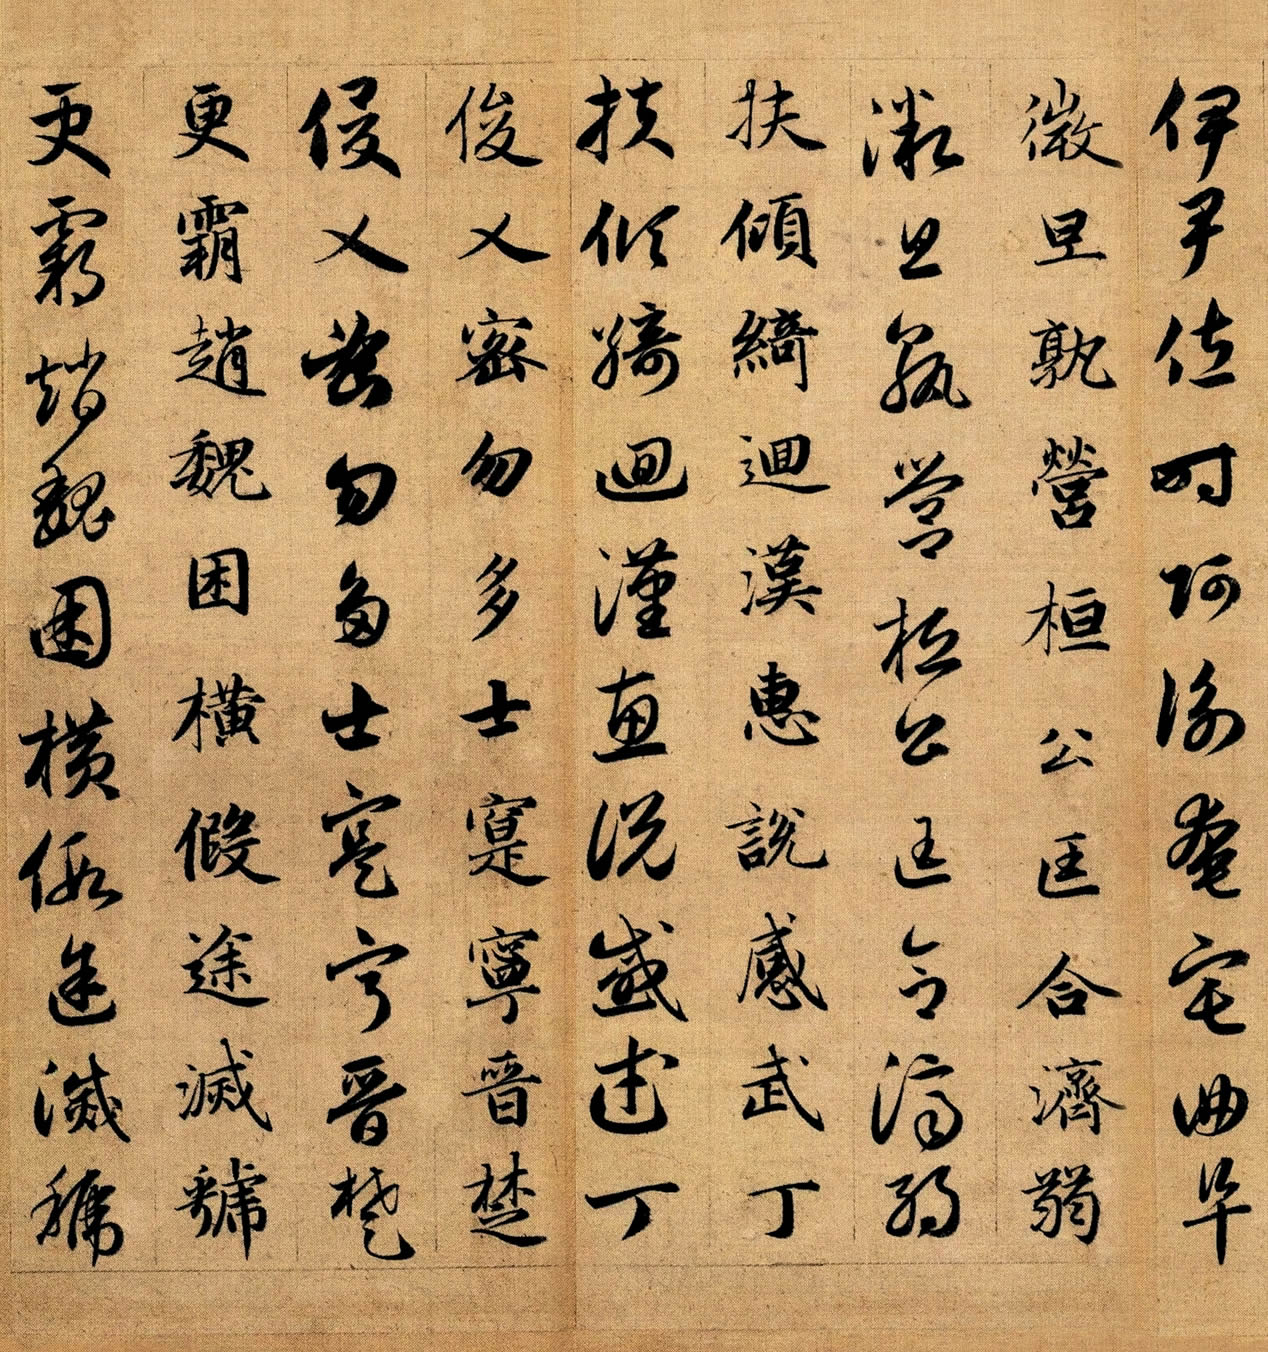 伊尹佐時阿衡奄宅曲阜
微旦孰營桓公匡合濟弱
微旦孰營桓公匡合濟弱
扶傾綺迴漢惠說感武丁
扶傾綺迴漢惠說感武丁
俊乂密勿多士寔寧晉楚
俊乂密勿多士寔寧晉楚
更霸趙魏困橫假途滅虢
更霸趙魏困橫假途滅虢